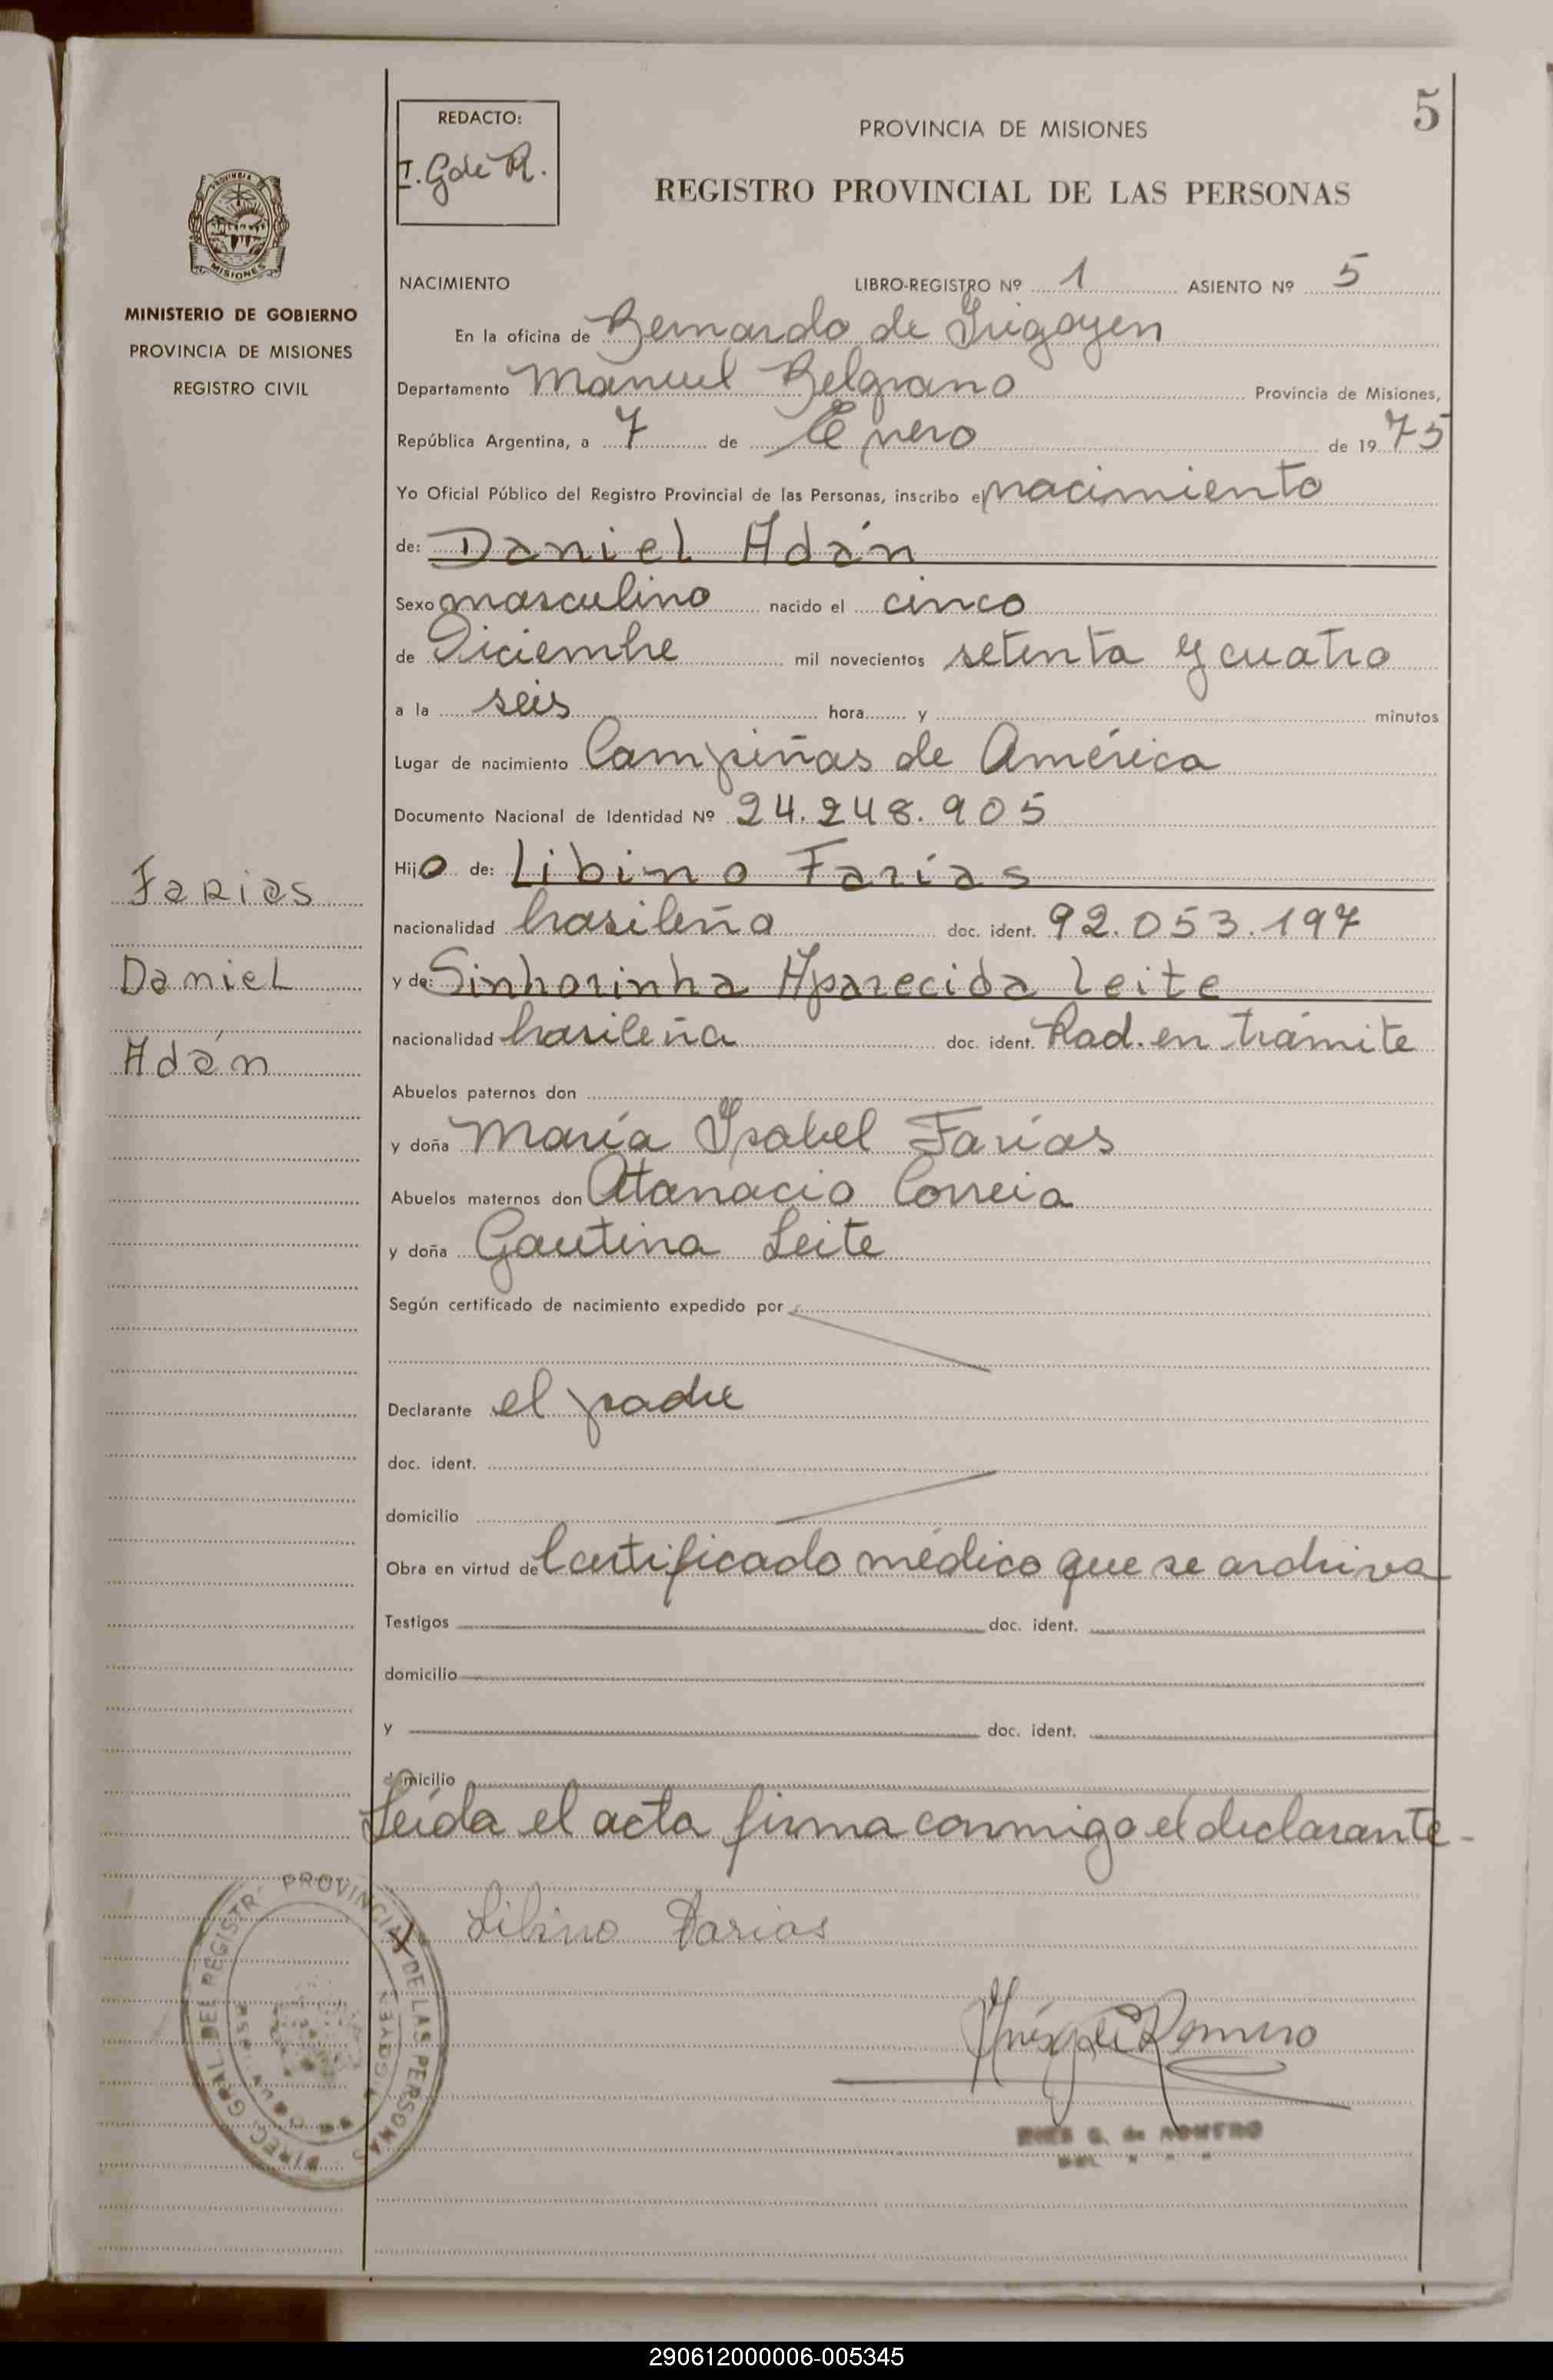 5
REDACTO:
I. G de R.
PROVINCIA DE MISIONES
REGISTRO PROVINCIAL DE LAS PERSONAS
PROVINCIA DE
MISIONES
MINISTERIO DE GOBIERNO
PROVINCIA DE MISIONES
REGISTRO CIVIL
NACIMIENTO LIBRO-REGISTRO Nº 1 ASIENTO Nº 5
En la oficina de Bernardo de Irigoyen
Departamento Manuel Belgrano Provincia de Misiones,
República Argentina, a 7 de Enero de 1975
Yo Oficial Público del Registro Provincial de las Personas, inscribo el nacimiento
de: Daniel Adán
Sexo masculino nacido el cinco
de Diciembre mil novecientos setenta y cuatro
a la seis hora y minutos
Lugar de nacimiento Campiñas de América
Documento Nacional de Identidad Nº 24.248.905
Hijo de: Libino Farías
nacionalidad brasileña doc. ident. 92.053.197
y de: Sinhorinha Aparecida Leite
nacionalidad brasileña doc. ident. Rad. en trámite
Abuelos paternos don
y doña María Isabel Farías
Abuelos maternos don Atanacio Correia
y doña Gautina Leite
Según certificado de nacimiento expedido por
Declarante el padre
doc. ident.
domicilio
Obra en virtud de Certificado médico que se archiva
Testigos doc. ident.
domicilio
y doc. ident.
domicilio
Leída el acta firma conmigo el declarante-
Libino Farias
Inés G de Romero
INES G. de ROMERO
Farias
Daniel
Adán
DIREC. GRAL. DEL REGISTR PROVINCIAL DE LAS PERSONAS
290612000006-005345